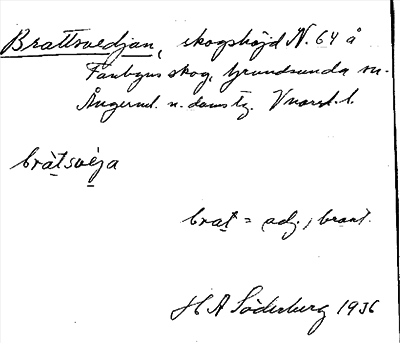 Brattsvedjan, skogshöjd N. 64 å
Fanbyns skog, Grundsunda sn.
Ångerml. n. domstg. Vnorrl. l.
bratsvėja
brat = adj., brant.
H A Söderberg 1936